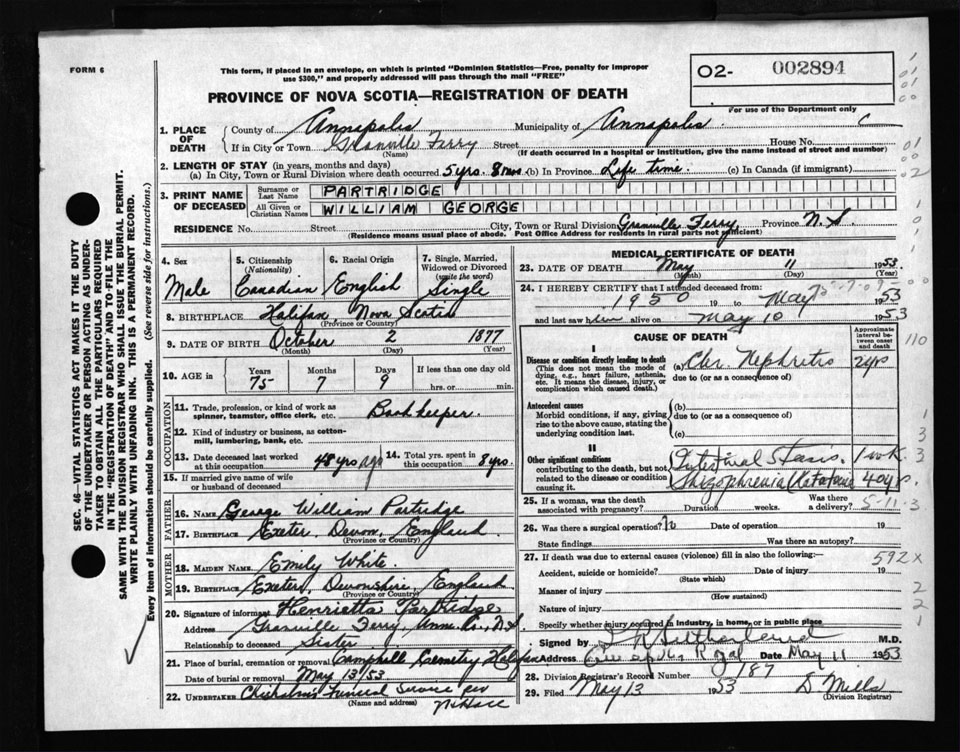 FORM 6
This form, if placed in an envelope, on which is printed "Dominion Statistics—Free, penalty for improper
use $300," and properly addressed will pass through the mail "FREE"
O2- 002894
For use of the Department only
PROVINCE OF NOVA SCOTIA—REGISTRATION OF DEATH
SEC. 46—VITAL STATISTICS ACT MAKES IT THE DUTY
OF THE UNDERTAKER OR PERSON ACTING AS UNDER-
TAKER TO OBTAIN ALL THE PARTICULARS REQUIRED
IN THE "REGISTRATION OF DEATH" AND TO FILE THE
SAME WITH THE DIVISION REGISTRAR WHO SHALL ISSUE THE BURIAL PERMIT.
WRITE PLAINLY WITH UNFADING INK. THIS IS A PERMANENT RECORD.
Every item of information should be carefully supplied. (See reverse side for instructions.)
1. PLACE OF DEATH County of Annapolis Municipality of Annapolis
If in City or Town Granville Ferry Street House No.
(Name) (If death occurred in a hospital or institution, give name instead of street and number)
2. LENGTH OF STAY (in years, months and days)
(a) In City, Town or Rural Division where death occurred 5 yrs. 8 mos. (b) In Province Life time. (c) In Canada (if immigrant)
3. PRINT NAME OF DECEASED Surname or Last Name PARTRIDGE
All Given or Christian Names WILLIAM GEORGE
RESIDENCE No. Street City, Town or Rural Division Granville Ferry, Province N.S
(Residence means usual place of abode. Post Office Address for residents in rural parts not sufficient)
4. Sex Male
5. Citizenship (Nationality) Canadian
6. Racial Origin English
7. Single, Married, Widowed or Divorced (write the word) Single
8. BIRTHPLACE Halifax Nova Scotia
(Province or Country)
9. DATE OF BIRTH October 2 1877
(Month) (Day) (Year)
10. AGE in Years Months Days If less than one day
75 7 9 hrs. or min.
OCCUPATION
11. Trade, profession, or kind of work as spinner, teamster, office clerk, etc. Bookkeeper.
12. Kind of industry or business, as cotton-mill, lumbering, bank, etc.
13. Date deceased last worked at this occupation 48 yrs ago
14. Total yrs. spent in this occupation 8 yrs.
15. If married give name of wife or husband of deceased
FATHER
16. NAME George William Partridge
17. BIRTHPLACE Exeter, Devon, England
(Province or Country)
MOTHER
18. MAIDEN NAME Emily White.
19. BIRTHPLACE Exeter, Devonshire, England
(Province or Country)
20. Signature of informant Henrietta Partridge
Address Granville Ferry, Anna. Co., N.S
Relationship to deceased Sister
21. Place of burial, cremation or removal Camphill Cemetry Halifax
Date of burial or removal May 13/53
22. UNDERTAKER Chisholm's Funeral Service
(Name and address)
MEDICAL CERTIFICATE OF DEATH
23. DATE OF DEATH May 11 1953
(Month) (Day) (Year)
24. I HEREBY CERTIFY that I attended deceased from:
1950 19 to May 1953
and last saw him alive on May 10 1953
CAUSE OF DEATH
Approximate interval between onset and death
I
Disease or condition directly leading to death (This does not mean the mode of dying, e.g., heart failure, asthenia, etc. It means the disease, injury, or complication which caused death.)
(a) Chr. Nephretis 2 yrs
due to (or as a consequence of)
Antecedent causes
Morbid conditions, if any, giving rise to the above cause, stating the underlying condition last.
(b)
due to (or as a consequence of)
(c)
II
Other significant conditions contributing to the death, but not related to the disease or condition causing it.
Intestinal Stasis. 1 wk.
Shizophrenia 40 yrs.
25. If a woman, was the death associated with pregnancy? Duration weeks. Was there a delivery?
26. Was there a surgical operation? No Date of operation 19
State findings Was there an autopsy?
27. If death was due to external causes (violence) fill in also the following:—
Accident, suicide or homicide? Date of injury 19
(State which)
Manner of injury
(How sustained)
Nature of injury
Specify whether injury occurred in industry, in home, or in public place
592 x
Signed by Sutherland M.D.
Address Annapolis Royal Date May 11 1953
28. Division Registrar's Record Number 187
29. Filed May 13 1953 D Mills
(Division Registrar)